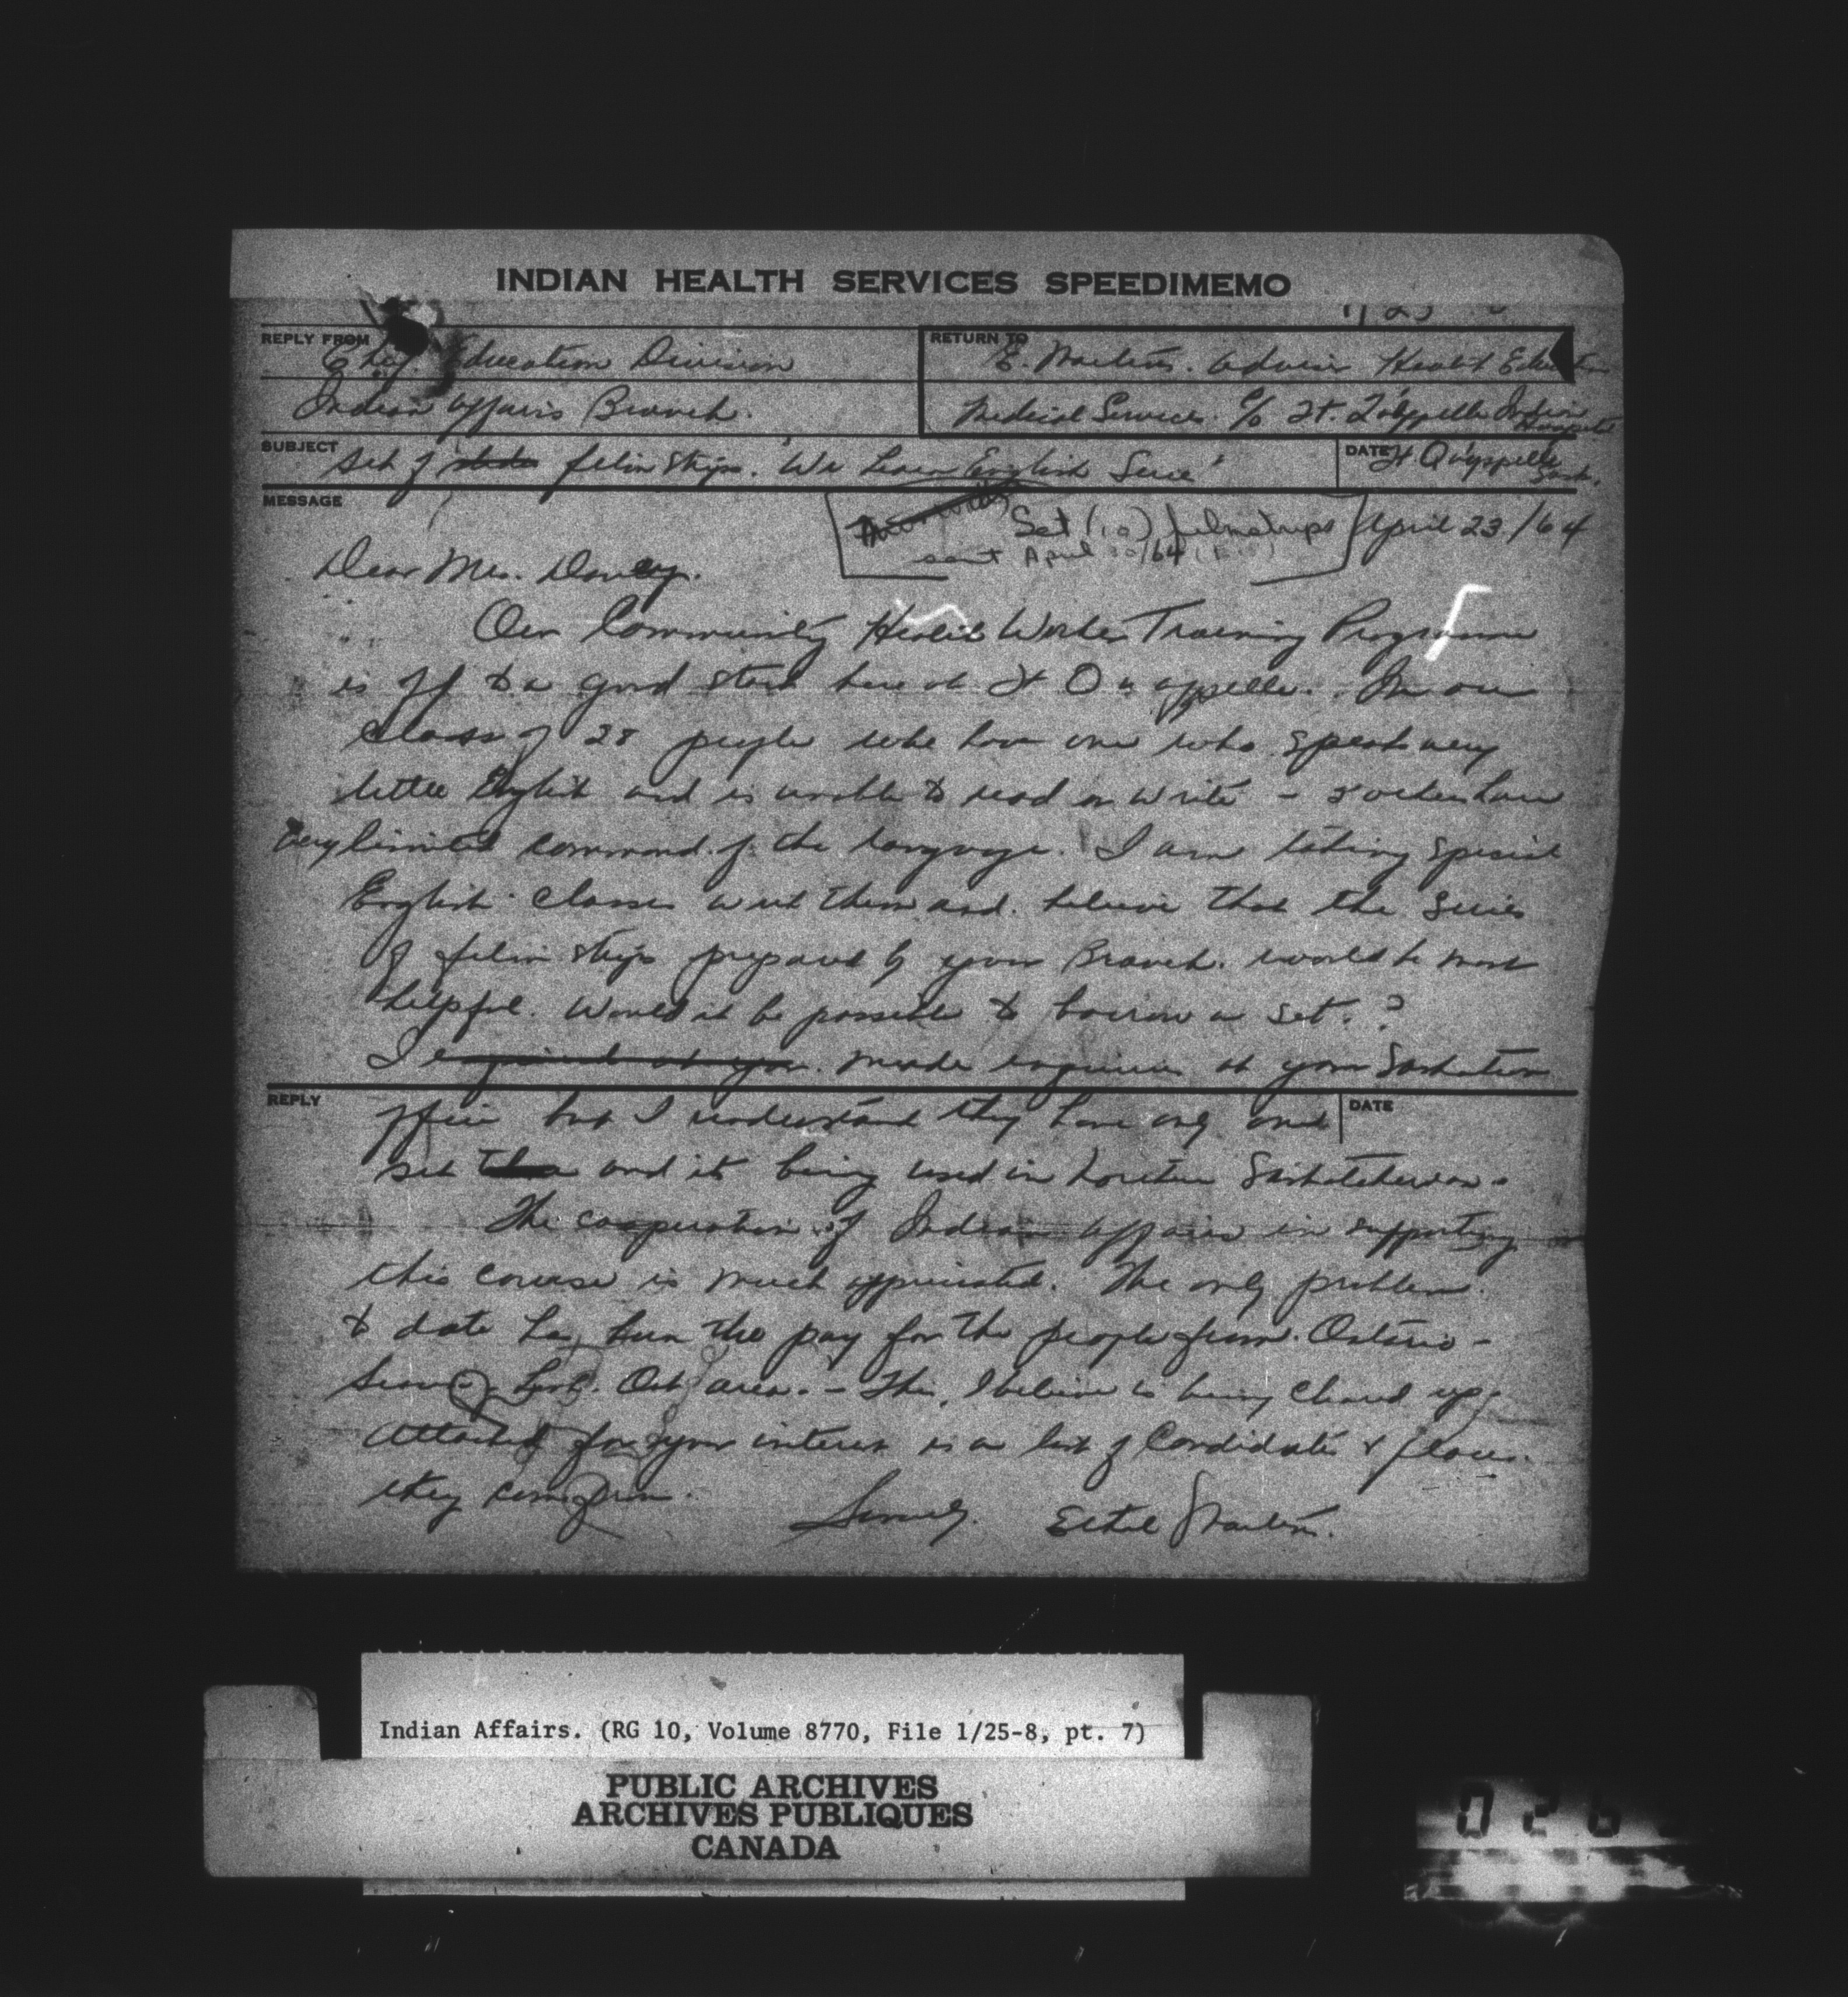 INDIAN HEALTH SERVICES SPEEDIMEMO
REPLY FROM
Chief Education Division
Indian Affairs Branch.
RETURN TO
E. Martens. Advisor Health Education
Medical Services. c/o Ft. Qu'Appelle Indian Hospital
SUBJECT
Set of film strips. 'We Learn English Serie'
DATE
Ft Qu'appelle Sask.
MESSAGE
Set (10) filmstrips
sent April /64
April 23/64
Dear Mr. Davey.
Our Community Health Worker Training Programme
is off to a good start here at Ft Qu'appelle. In our
class of 28 people we have one who speaks very
little English and is unable to read or write - 5 others have
very limited command of the language. I am taking special
English classes with them and believe that the series
of film strips prepared by your Branch. would be most
helpful. Would it be possible to borrow a set.?
I enquired at your made enquiries at your Saskatoon
REPLY
DATE
office but I understand they have only one
set and it's being used in Northern Saskatchewan.
The cooperation of Indian Affairs in supporting
this course is much appreciated. The only problem
to date has been the pay for the people from Ontario -
Sioux Look. Out area. - This, I believe is being cleared up.
Attached for your interest is a list of Candidates & places
they come from.
Sincerely. Ethel Martens.
Indian Affairs. (RG 10, Volume 8770, File 1/25-8, pt. 7)
PUBLIC ARCHIVES
ARCHIVES PUBLIQUES
CANADA
026